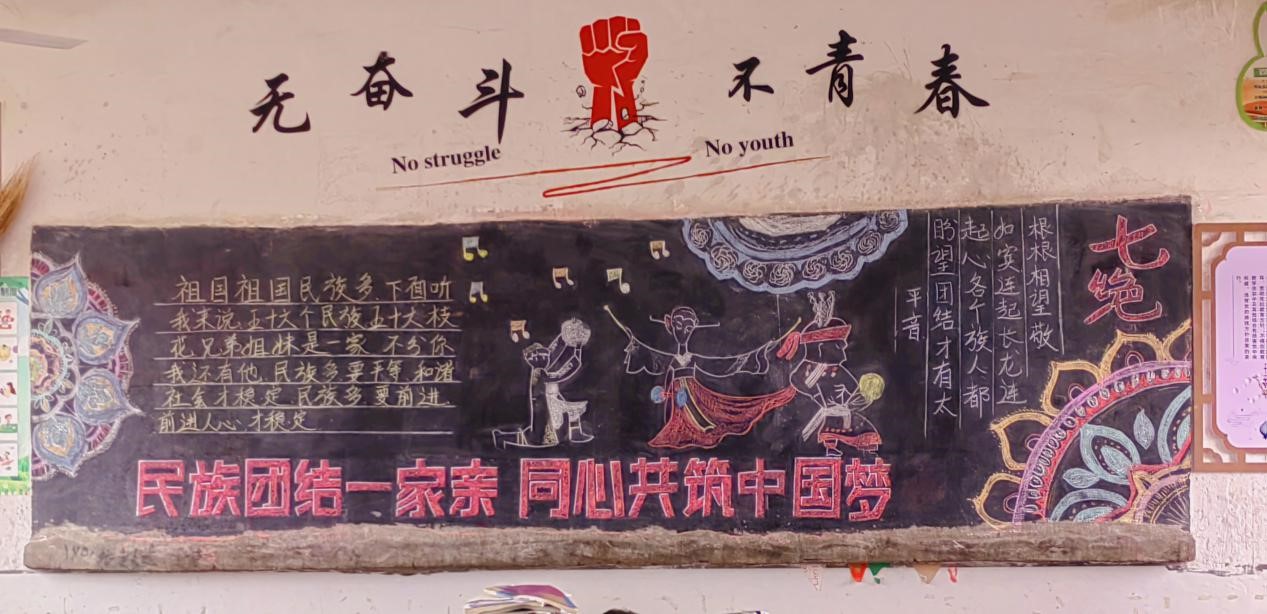 无奋斗 不青春
No struggle No youth
祖国祖国民族多.下面听
我来说.五十六个民族五十六枝
花.兄弟姐妹是一家.不分你
我还有他.民族多要平等.和谐
社会才稳定.民族多要前进.
前进人心才稳定
七绝
根根相望敬
如实连起长龙连
起心各个族人都
盼望团结才有太
平音.
民族团结一家亲 同心共筑中国梦